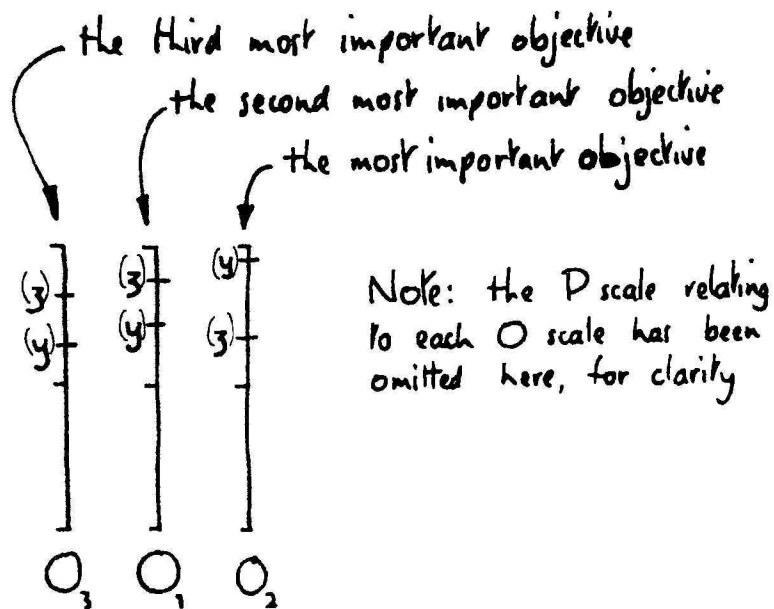 the third most important objective
the second most important objective
the most important objective
(z) (z) (y)
(y) (y) (z)
Note: the P scale relating
to each O scale has been
omitted here, for clarity
O₃ O₁ O₂